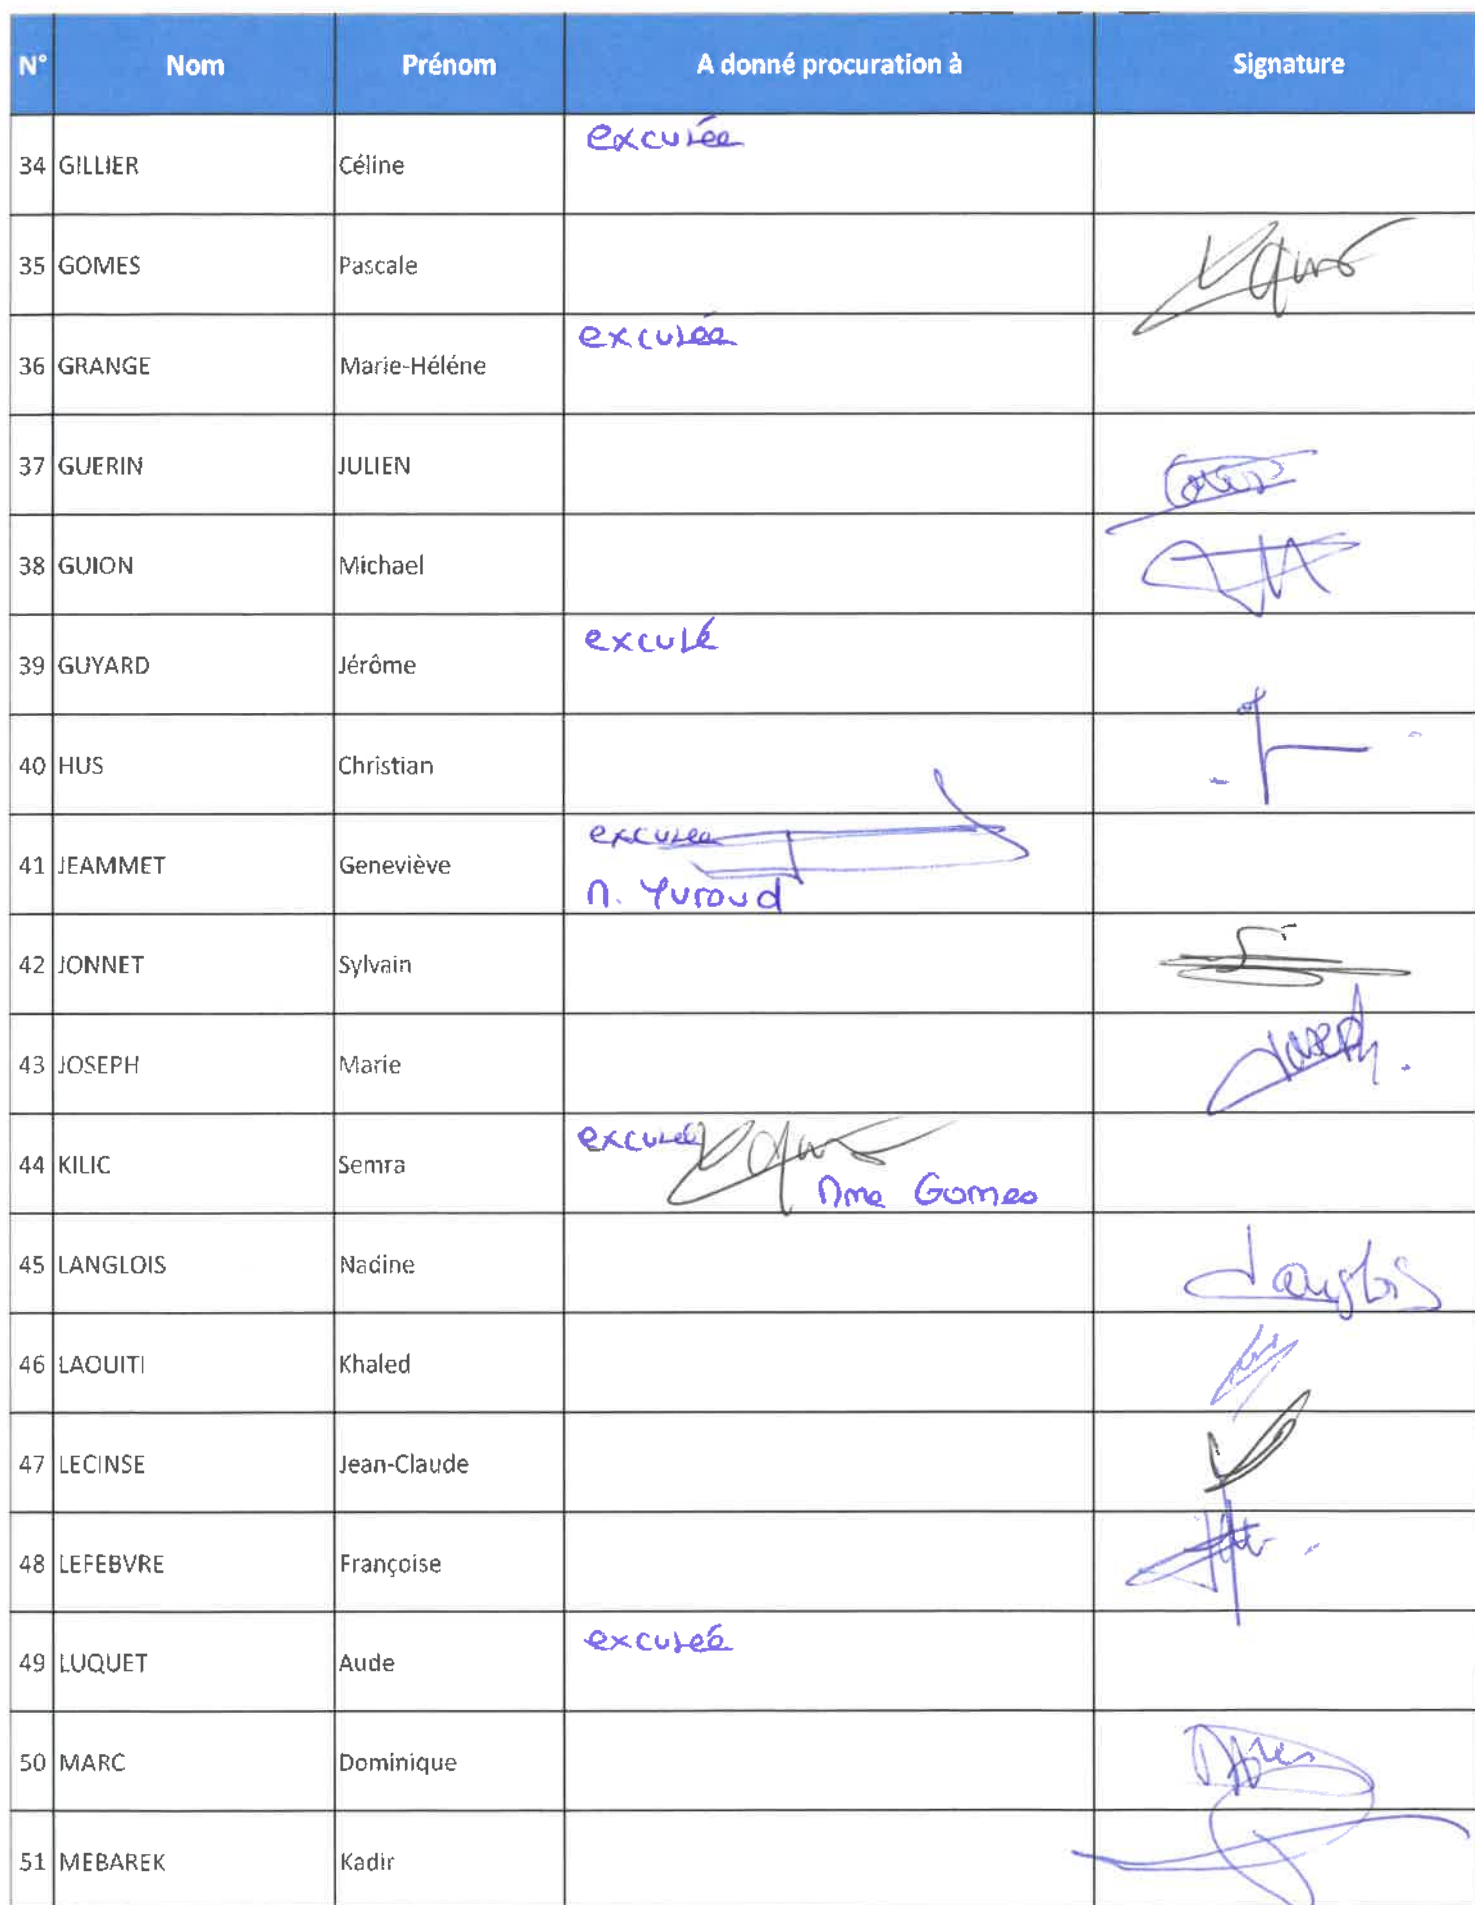 N° Nom Prénom A donné procuration à Signature
34 GILLIER Céline excusée
35 GOMES Pascale
36 GRANGE Marie-Héléne excusée
37 GUERIN JULIEN
38 GUION Michael
39 GUYARD Jérôme excusé
40 HUS Christian
41 JEAMMET Geneviève excusée
M. Yuroud
42 JONNET Sylvain
43 JOSEPH Marie Joseph.
44 KILIC Semra excusée
Mme Gomes
45 LANGLOIS Nadine Langlois
46 LAOUITI Khaled
47 LECINSE Jean-Claude
48 LEFEBVRE Françoise
49 LUQUET Aude excusée
50 MARC Dominique
51 MEBAREK Kadir